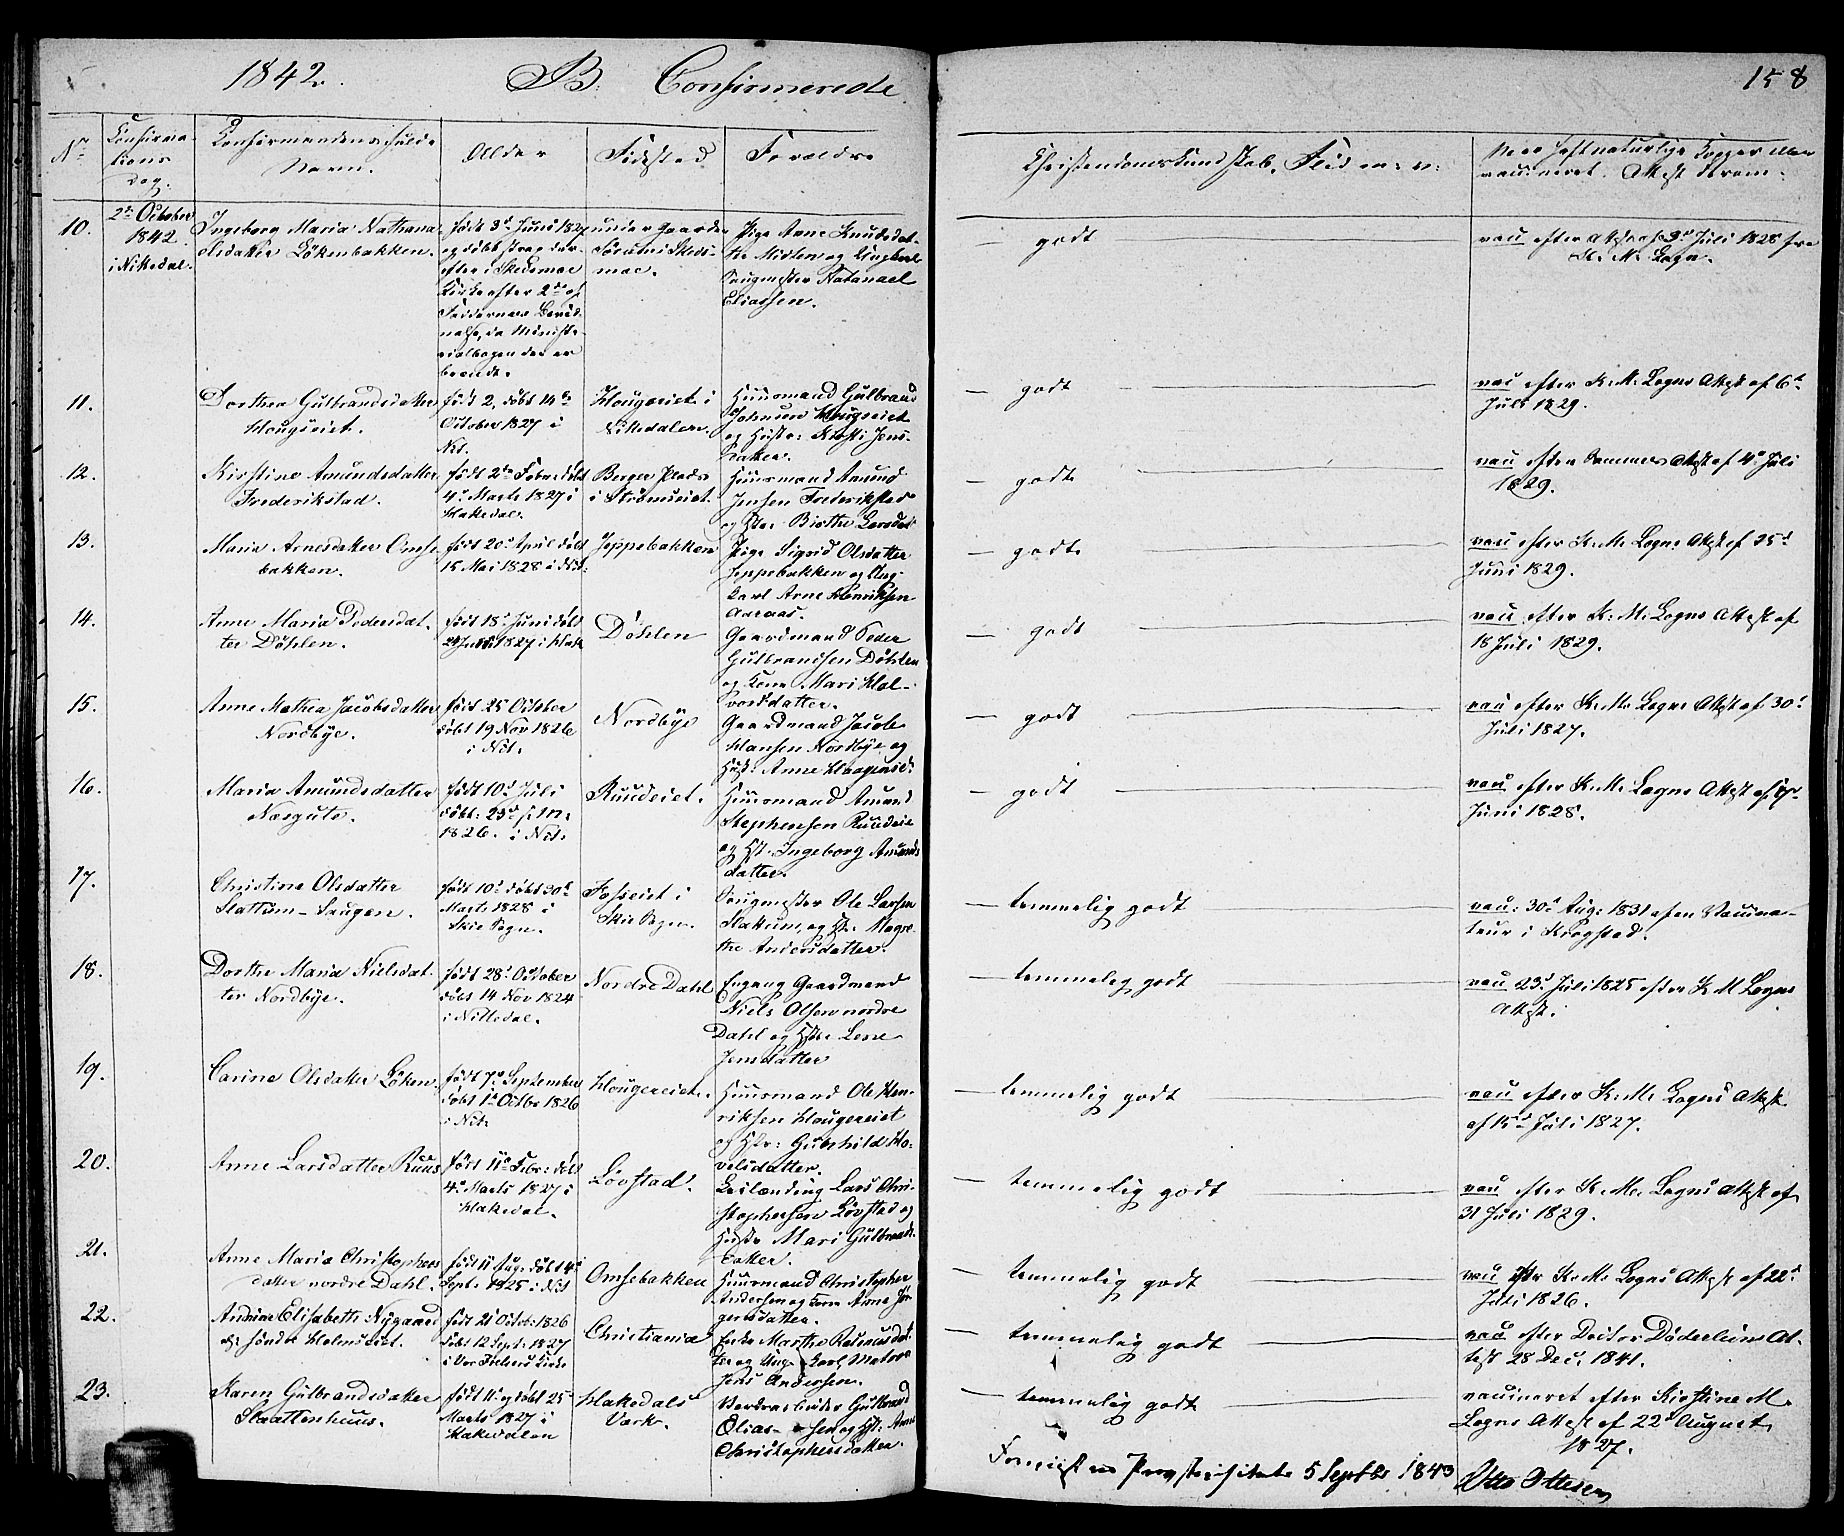 1842. B. Confirmerede 158
No
Confirma-
tions
Dag.
Confirmandens fulde
Navn.
Alder
Födested
Forældre
Christendomskundskab, Flid m: v:
vaccineret. Attest derom.
10.
2den October
1842
i Nittedal.
Ingeborg Maria Nathana-
elsdatter Lökenbakken.
født 3d Juni 1827
og döbt strax der-
efter i Skedsmoe
Kirke efter 2de af
Faddernes Bevid-
nelse, da Ministe-
rialbogen der er
brændt.
under Gaarden
Sörum i Skeds-
moe.
Pige Anne Knudsdat-
ter Moslen og Ungkarl
Saugmester Natanael
Eliassen.
godt
vacc efter Attest af 3d Juli 1828 fra
K: M: Logn.
11.
Dorthea Gulbrandsdatter
Hougseiet.
født 2, döbt 14de
October 1827 i
Nit.
Hougseiet i
Nittedalen.
Huusmand Gulbrand
Johnsen Hougseiet
og Hustr: Kirsti Jens-
datter.
godt
vac efter K: M: Logns Attest af 6te
Juli 1829.
12.
Kirstine Amundsdatter
Frederikstad.
født 2den Febr: döbt
4d Marts 1827 i
Hakedal.
Berger Plads
i Strömseiet.
Huusmand Amund
Jensen Frederikstad
og Hstr Birthe Larsdat
godt
vac efter Sammes Attest af 4d Juli
1829.
13.
Maria Arnesdatter Omse-
bakken.
født 20d April döbt
15 Mai 1828 i Nit:
Jeppebakken
Pige Sigrid Olsdatter
Jeppebakken og Ung-
karl Arne Henriksen
Aaraas.
godt
vacc efter K: M: Logns Attest af 25d
Juni 1829.
14.
Anne Maria Pedersdat-
ter Döhlen.
født 18d Juni döbt
24 Juni 1827 i Hak
Döhlen
Gaardmand Peder
Gulbrandsen Döhlen
og Kone Mari Hal-
vorsdatter.
godt
vacc efter K: M: Logns Attest af
18 Juli 1829.
15.
Anne Mathea Jacobsdatter
Nordbye.
født 25d October
döbt 19 Nov 1826
i Nit.
Nordbye
Gaardmand Jacob
Hansen Nordbye og
Hust: Anne Haagensd:
godt
vacc efter K: M: Logns Attest af 30d
Juli 1827.
16.
Maria Amundsdatter
Næsgute.
født 10d Juli
döbt: 23d s: M:
1826. i Nit.
Ruudeiet.
Huusmand Amund
Stephensen Ruudeie
og Hst. Ingeborg Amunds
datter.
godt
vacc efter K: M: Logns Attest af
Juni 1828.
17.
Christine Olsdatter
Slattum-Saugen.
født 10d döbt 30d
Marts 1828 i
Skie Sogn.
Fosseiet i
Skie Sogn.
Saugmester Ole Larsen
Slatum, og Hst: Magre-
the Andersdatter.
temmelig godt
vacc: 30d Aug: 1831 af en Vaccina-
teur i Krogstad.
18.
Dorthe Maria Nielsdat-
ter Nordbye.
født 28d October
döbt 14 Nov 1824
i Nittedal.
Nordre Dahl
Niels Olsen nordre
Dahl og Hstr Lene
Jensdatter
temmelig godt
vacc 23d Juli 1825 efter K M Logns
Attest.
19.
Carine Olsdatter Löken.
født 7d September
döbt 1d Octbr 1826
i Nit.
Hougereiet.
Huusmand Ole Hen-
riksen Hougereiet
og Hstr: Gunhild Ho-
velsdatter.
temmelig godt
vacc efter K: M: Logns Attest
af 15d Juli 1827.
20.
Anne Larsdatter Ruus
født 11d Febr: döbt
4d Marts 1827 i
Hakedal.
Lövstad.
Leilænding Lars Chri-
stophersen Lövstad og
Hustr Mari Gulbrands-
datter.
temmelig godt
vacc efter K: M: Logns Attest af
31 Juli 1829.
21.
Anne Maria Christophers
datter nordre Dahl.
født 11 Aug: döbt 4d
Sept: 1825 i Nit
Omsebakken
Huusmand Christopher
Andersen og Kone Anne Jör-
gensdatter.
temmelig godt
vacc efter K: M: Logns Attest af 22d
Juli 1826.
22.
Andrine Elisabeth Nygaard
söndre Holmseiet.
født 21 Octob: 1826
döbt 12 Sept: 1827
i Vor Frelsers Kirke
Christiania
Enke Marthe Rasmusdat-
ter og Ung Karl Matros
Jens Andersen.
temmelig godt
vacc efter Doctor Döderleins At-
test 28 Dec: 1841.
23.
Karen Gulbrandsdatter
Skrattenhuus.
født 11 og döbt 25d
Marts 1827 i
Hakedalen
Hakedals
Værk.
Værksarbeider Gulbrand
Elias- sen og Hst: Anne
Christophersdatter.
temmelig godt
vaccineret efter Kirstine M.
Logns Attest af 22d August
1827.
Foreviist en Provstevisitats 5 Septbr 1843
Otto Ottesen